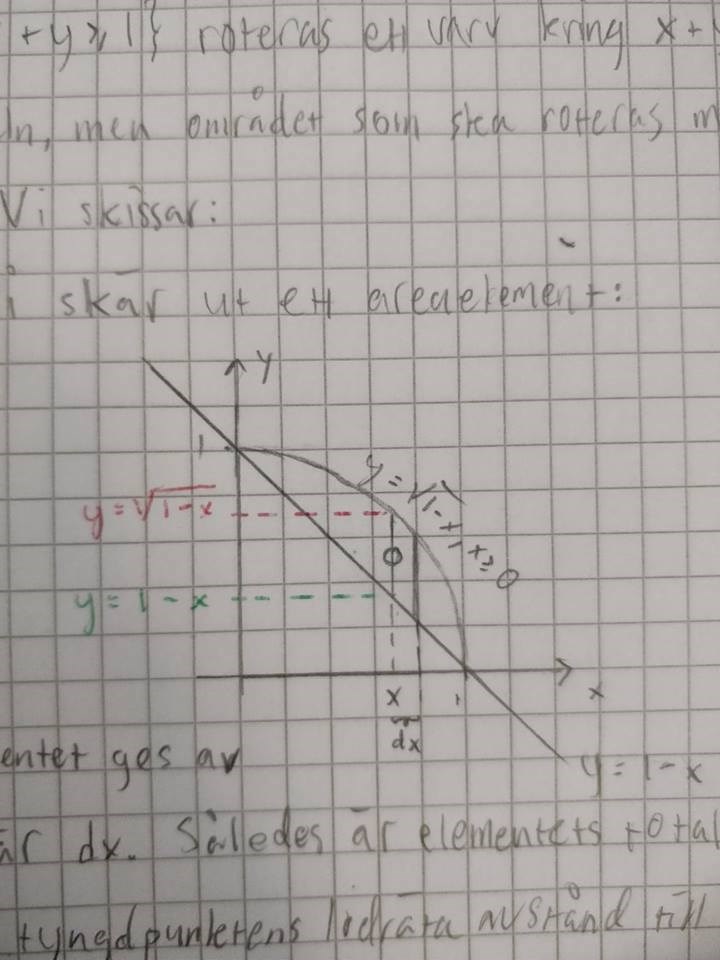 +y ≥ 1} roteras ett varv kring x+
ln, men området som ska roteras m
Vi skissar:
i skär ut ett areaelement:
y
1
y = √1-x
y = 1 - x
x
1
x
dx
y = 1-x
entet ges av
är dx. Således är elementets total
tyngdpunktens lodräta avstånd till